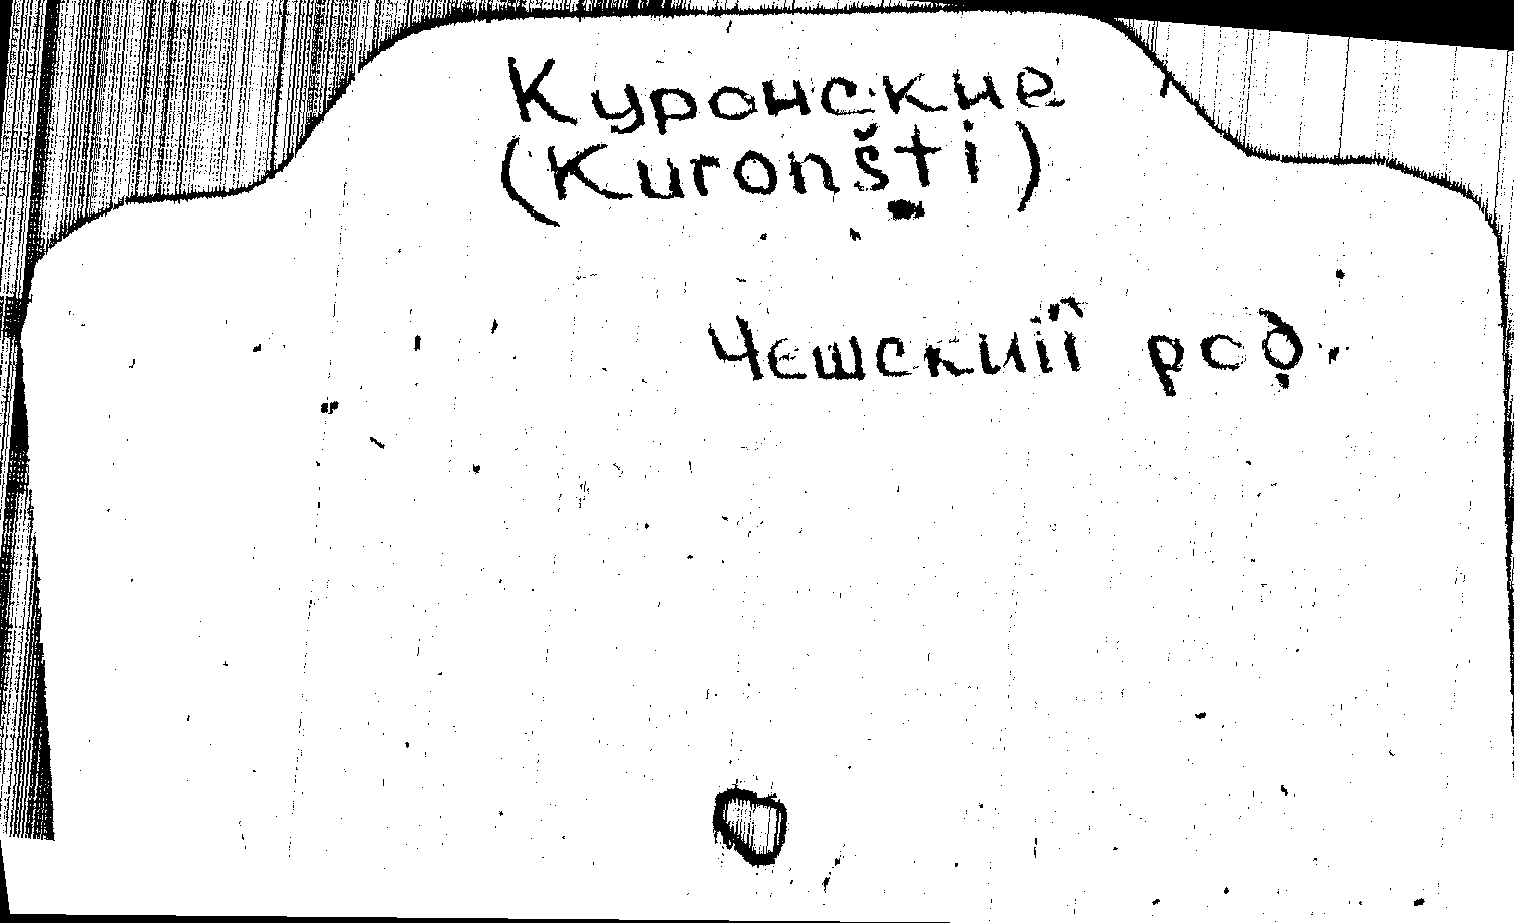 Куронские
(Kuronšti)
Чешский род.